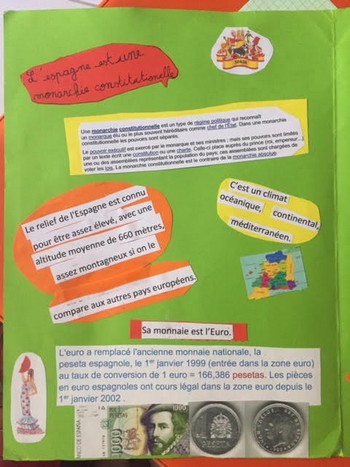 L'espagne est une
monarchie constitutionnelle
Une monarchie constitutionnelle est un type de régime politique qui reconnaît
un monarque élu ou le plus souvent héréditaire comme chef de l'État. Dans une monarchie
constitutionnelle les pouvoirs sont séparés.
Le pouvoir exécutif est exercé par le monarque et ses ministres ; mais ses pouvoirs sont limités
par un texte écrit une constitution ou une charte. Celle-ci place auprès du prince (roi, empereur...)
une ou des assemblées représentant la population du pays; ces assemblées sont chargées de
voter les lois. La monarchie constitutionnelle est le contraire de la monarchie absolue.
Le relief de l'Espagne est connu
pour être assez élevé, avec une
altitude moyenne de 660 mètres,
assez montagneux si on le
compare aux autres pays européens.
C'est un climat
océanique, continental,
méditerranéen.
Sa monnaie est l'Euro.
L'euro a remplacé l'ancienne monnaie nationale, la
peseta espagnole, le 1er janvier 1999 (entrée dans la zone euro)
au taux de conversion de 1 euro = 166,386 pesetas. Les pièces
en euro espagnoles ont cours légal dans la zone euro depuis le
1er janvier 2002 .
1000
1000